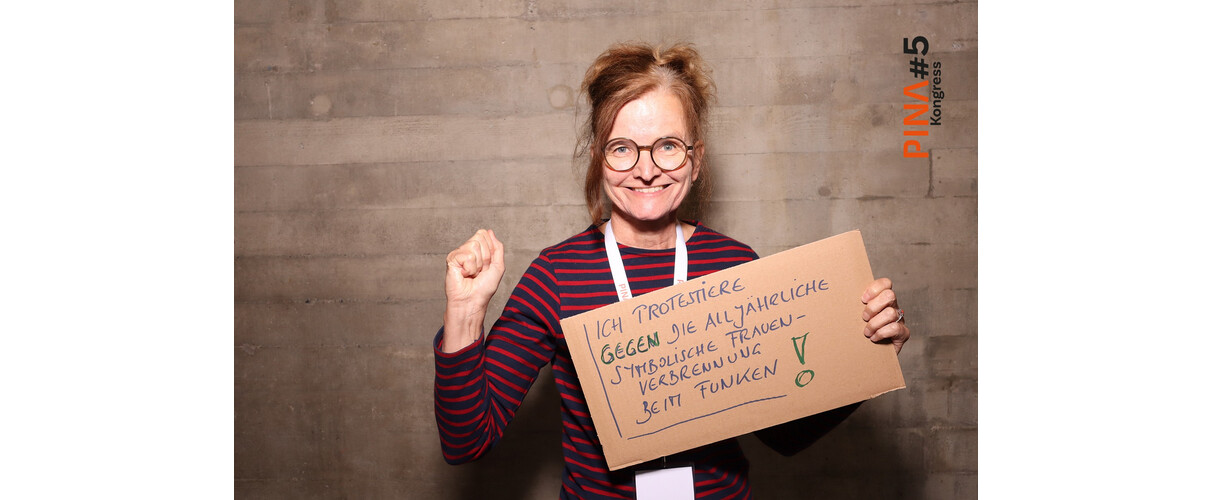 PINA#5
Kongress
PINA
ICH PROTESTIERE
GEGEN DIE ALLJÄHRLICHE
SYMBOLISCHE FRAUEN-
VERBRENNUNG
BEIM FUNKEN !